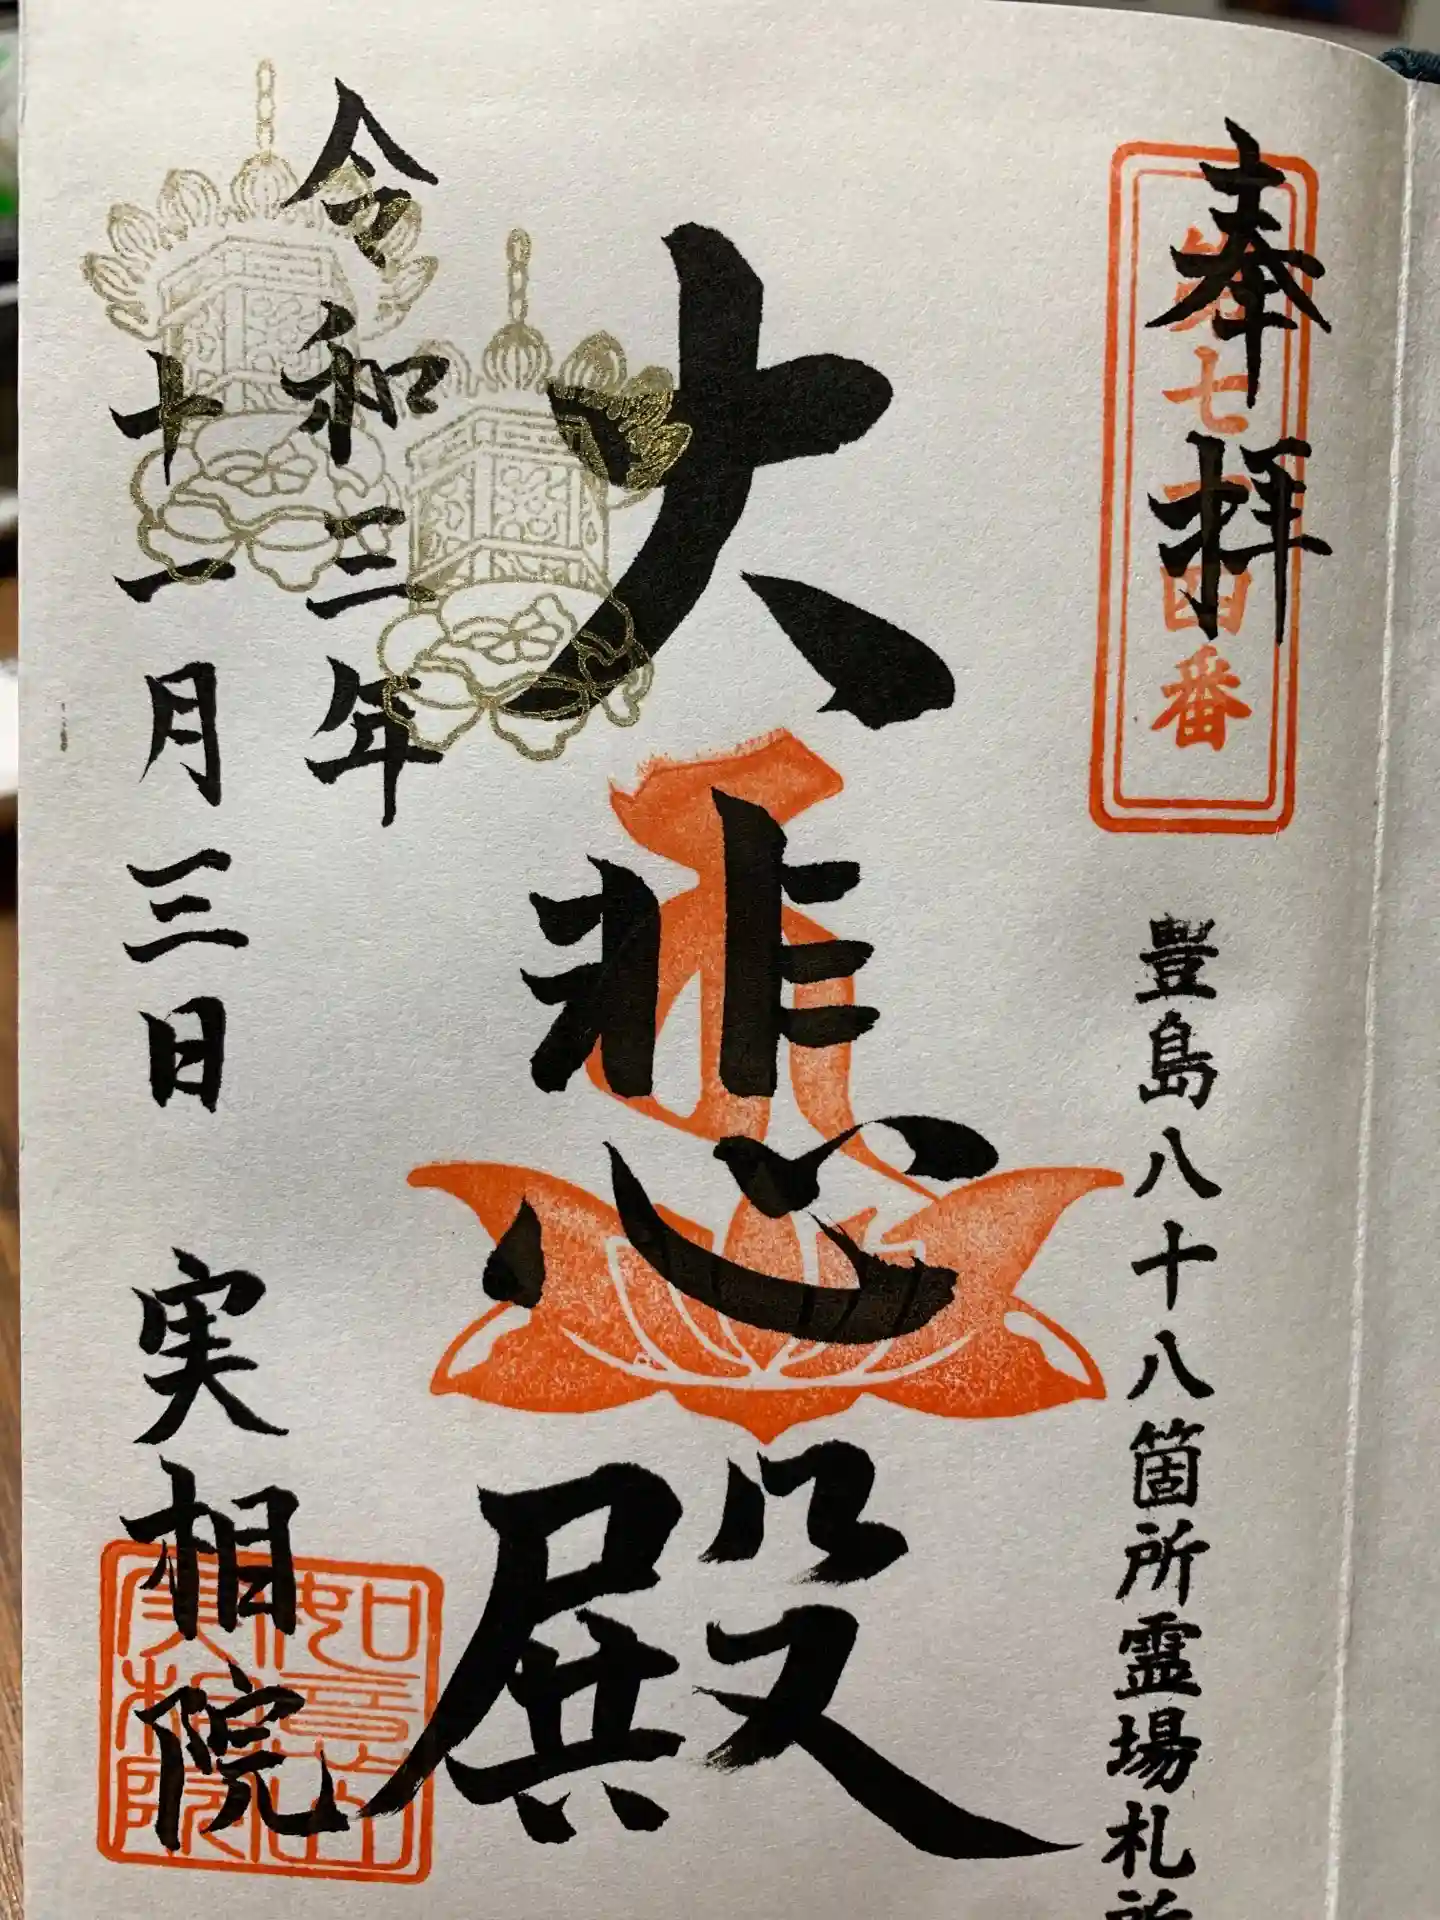 奉拝
第七十四番
豊島八十八箇所霊場札所
大悲殿
令和三年
十一月三日
実相院
如意山
実相院